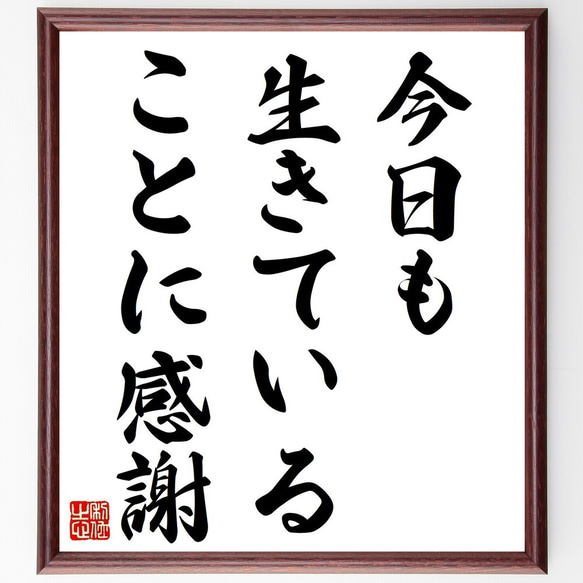 今日も
生きている
ことに感謝